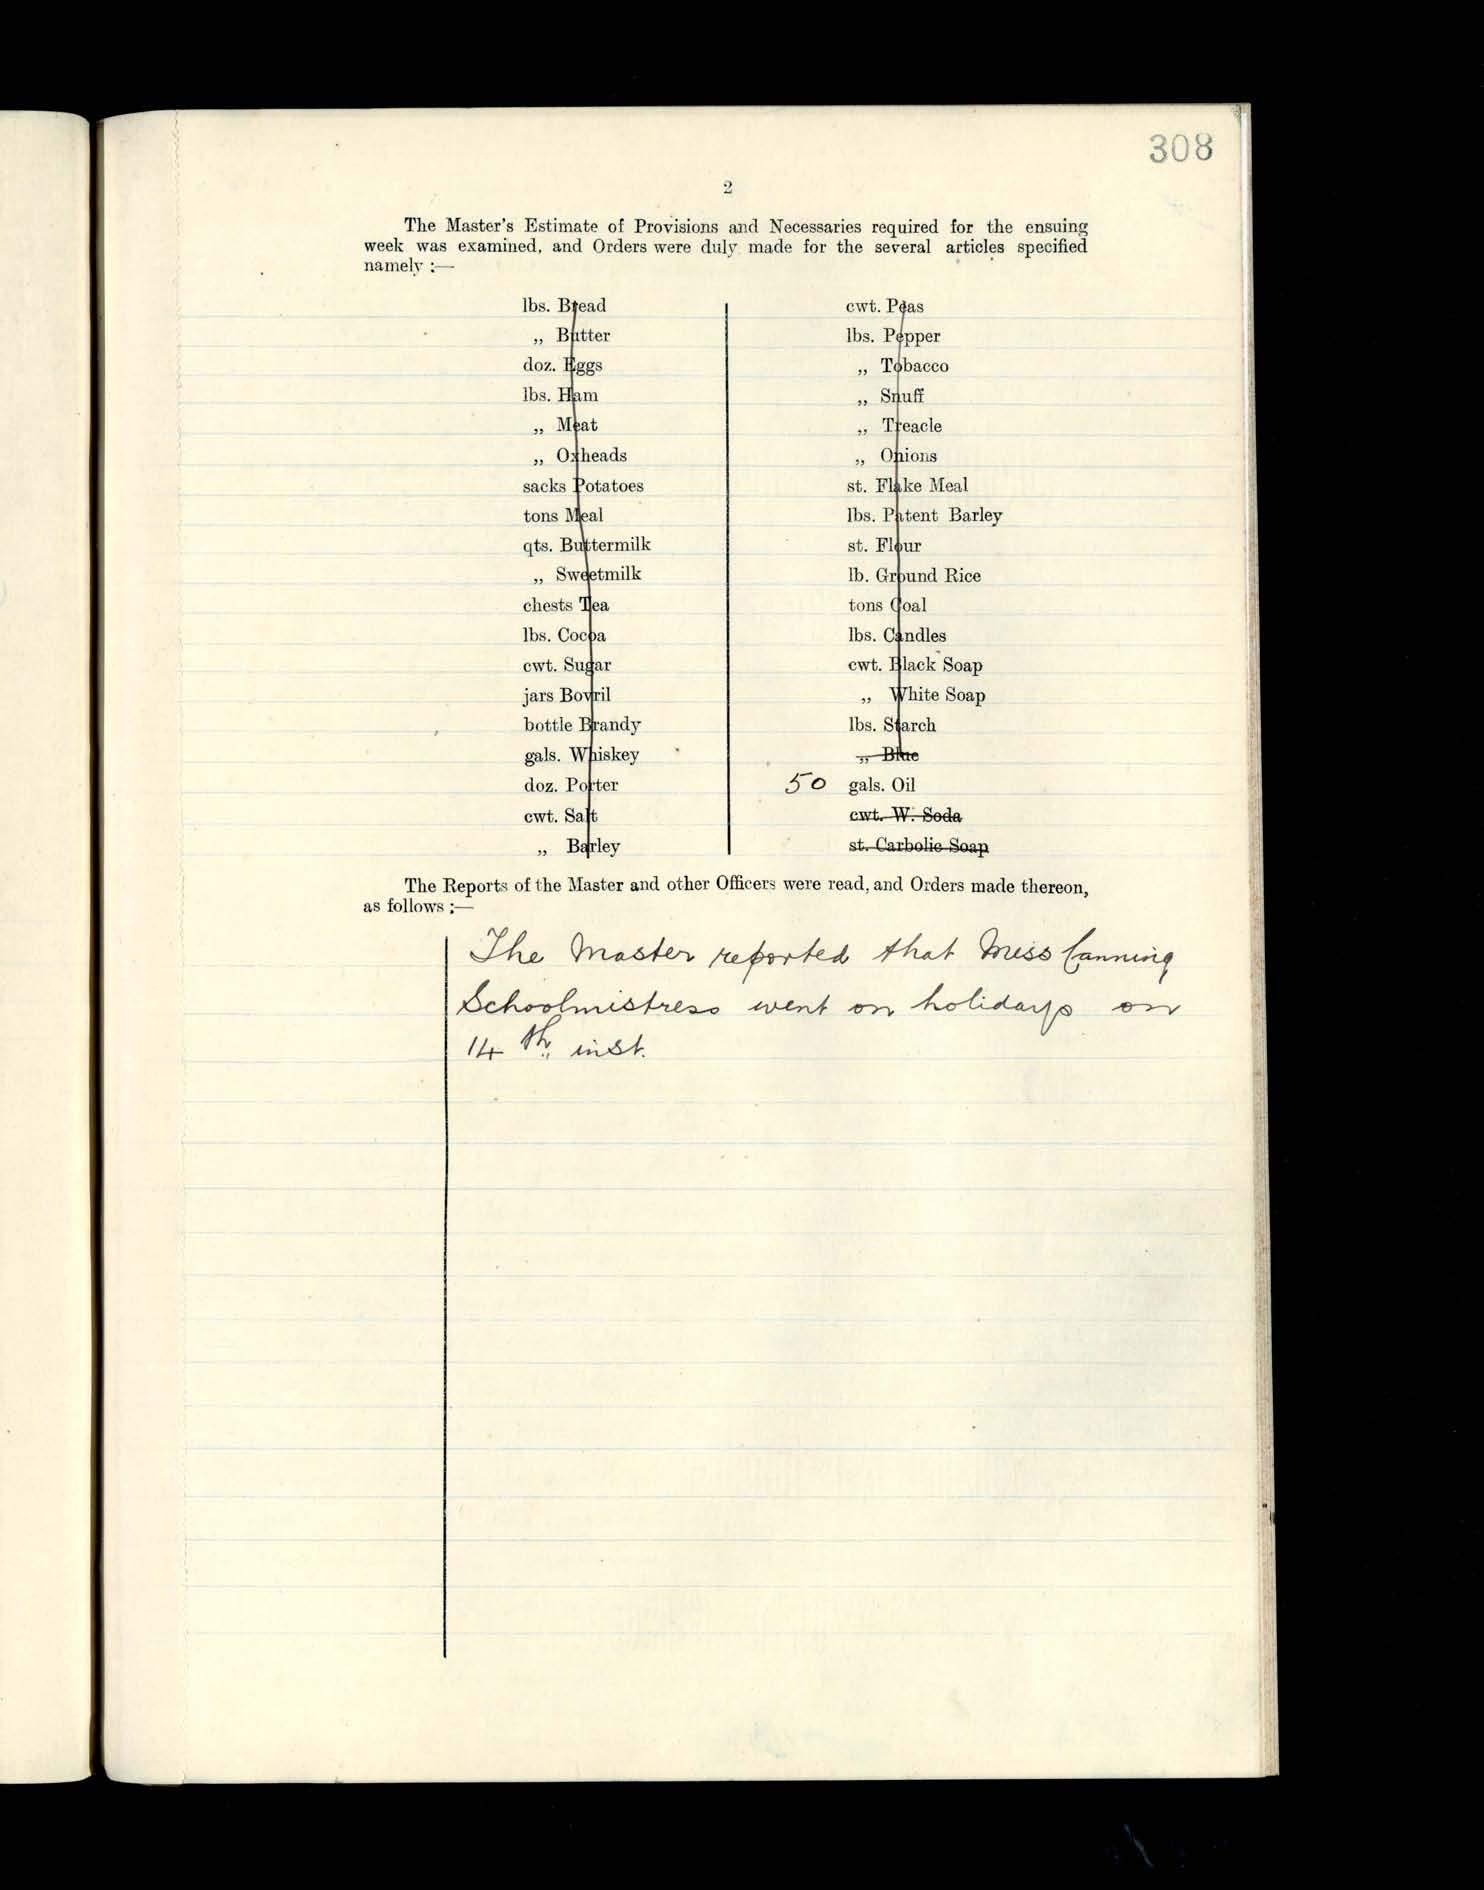 308
2
The Master's Estimate of Provisions and Necessaries required for the ensuing
week was examined, and Orders were duly made for the several articles specified
namely :—
lbs. Bread
„ Butter
doz. Eggs
lbs. Ham
„ Meat
„ Oxheads
sacks Potatoes
tons Meal
qts. Buttermilk
„ Sweetmilk
chests Tea
lbs. Cocoa
cwt. Sugar
jars Bovril
bottle Brandy
gals. Whiskey
doz. Porter
cwt. Salt
„ Barley
cwt. Peas
lbs. Pepper
„ Tobacco
„ Snuff
„ Treacle
„ Onions
st. Flake Meal
lbs. Patent Barley
st. Flour
lb. Ground Rice
tons Coal
lbs. Candles
cwt. Black Soap
„ White Soap
lbs. Starch
„ Blue
50 gals. Oil
cwt. W. Soda
st. Carbolic Soap
The Reports of the Master and other Officers were read, and Orders made thereon,
as follows :—
The Master reported that Miss Canning
Schoolmistress went on holidays on
14th inst.